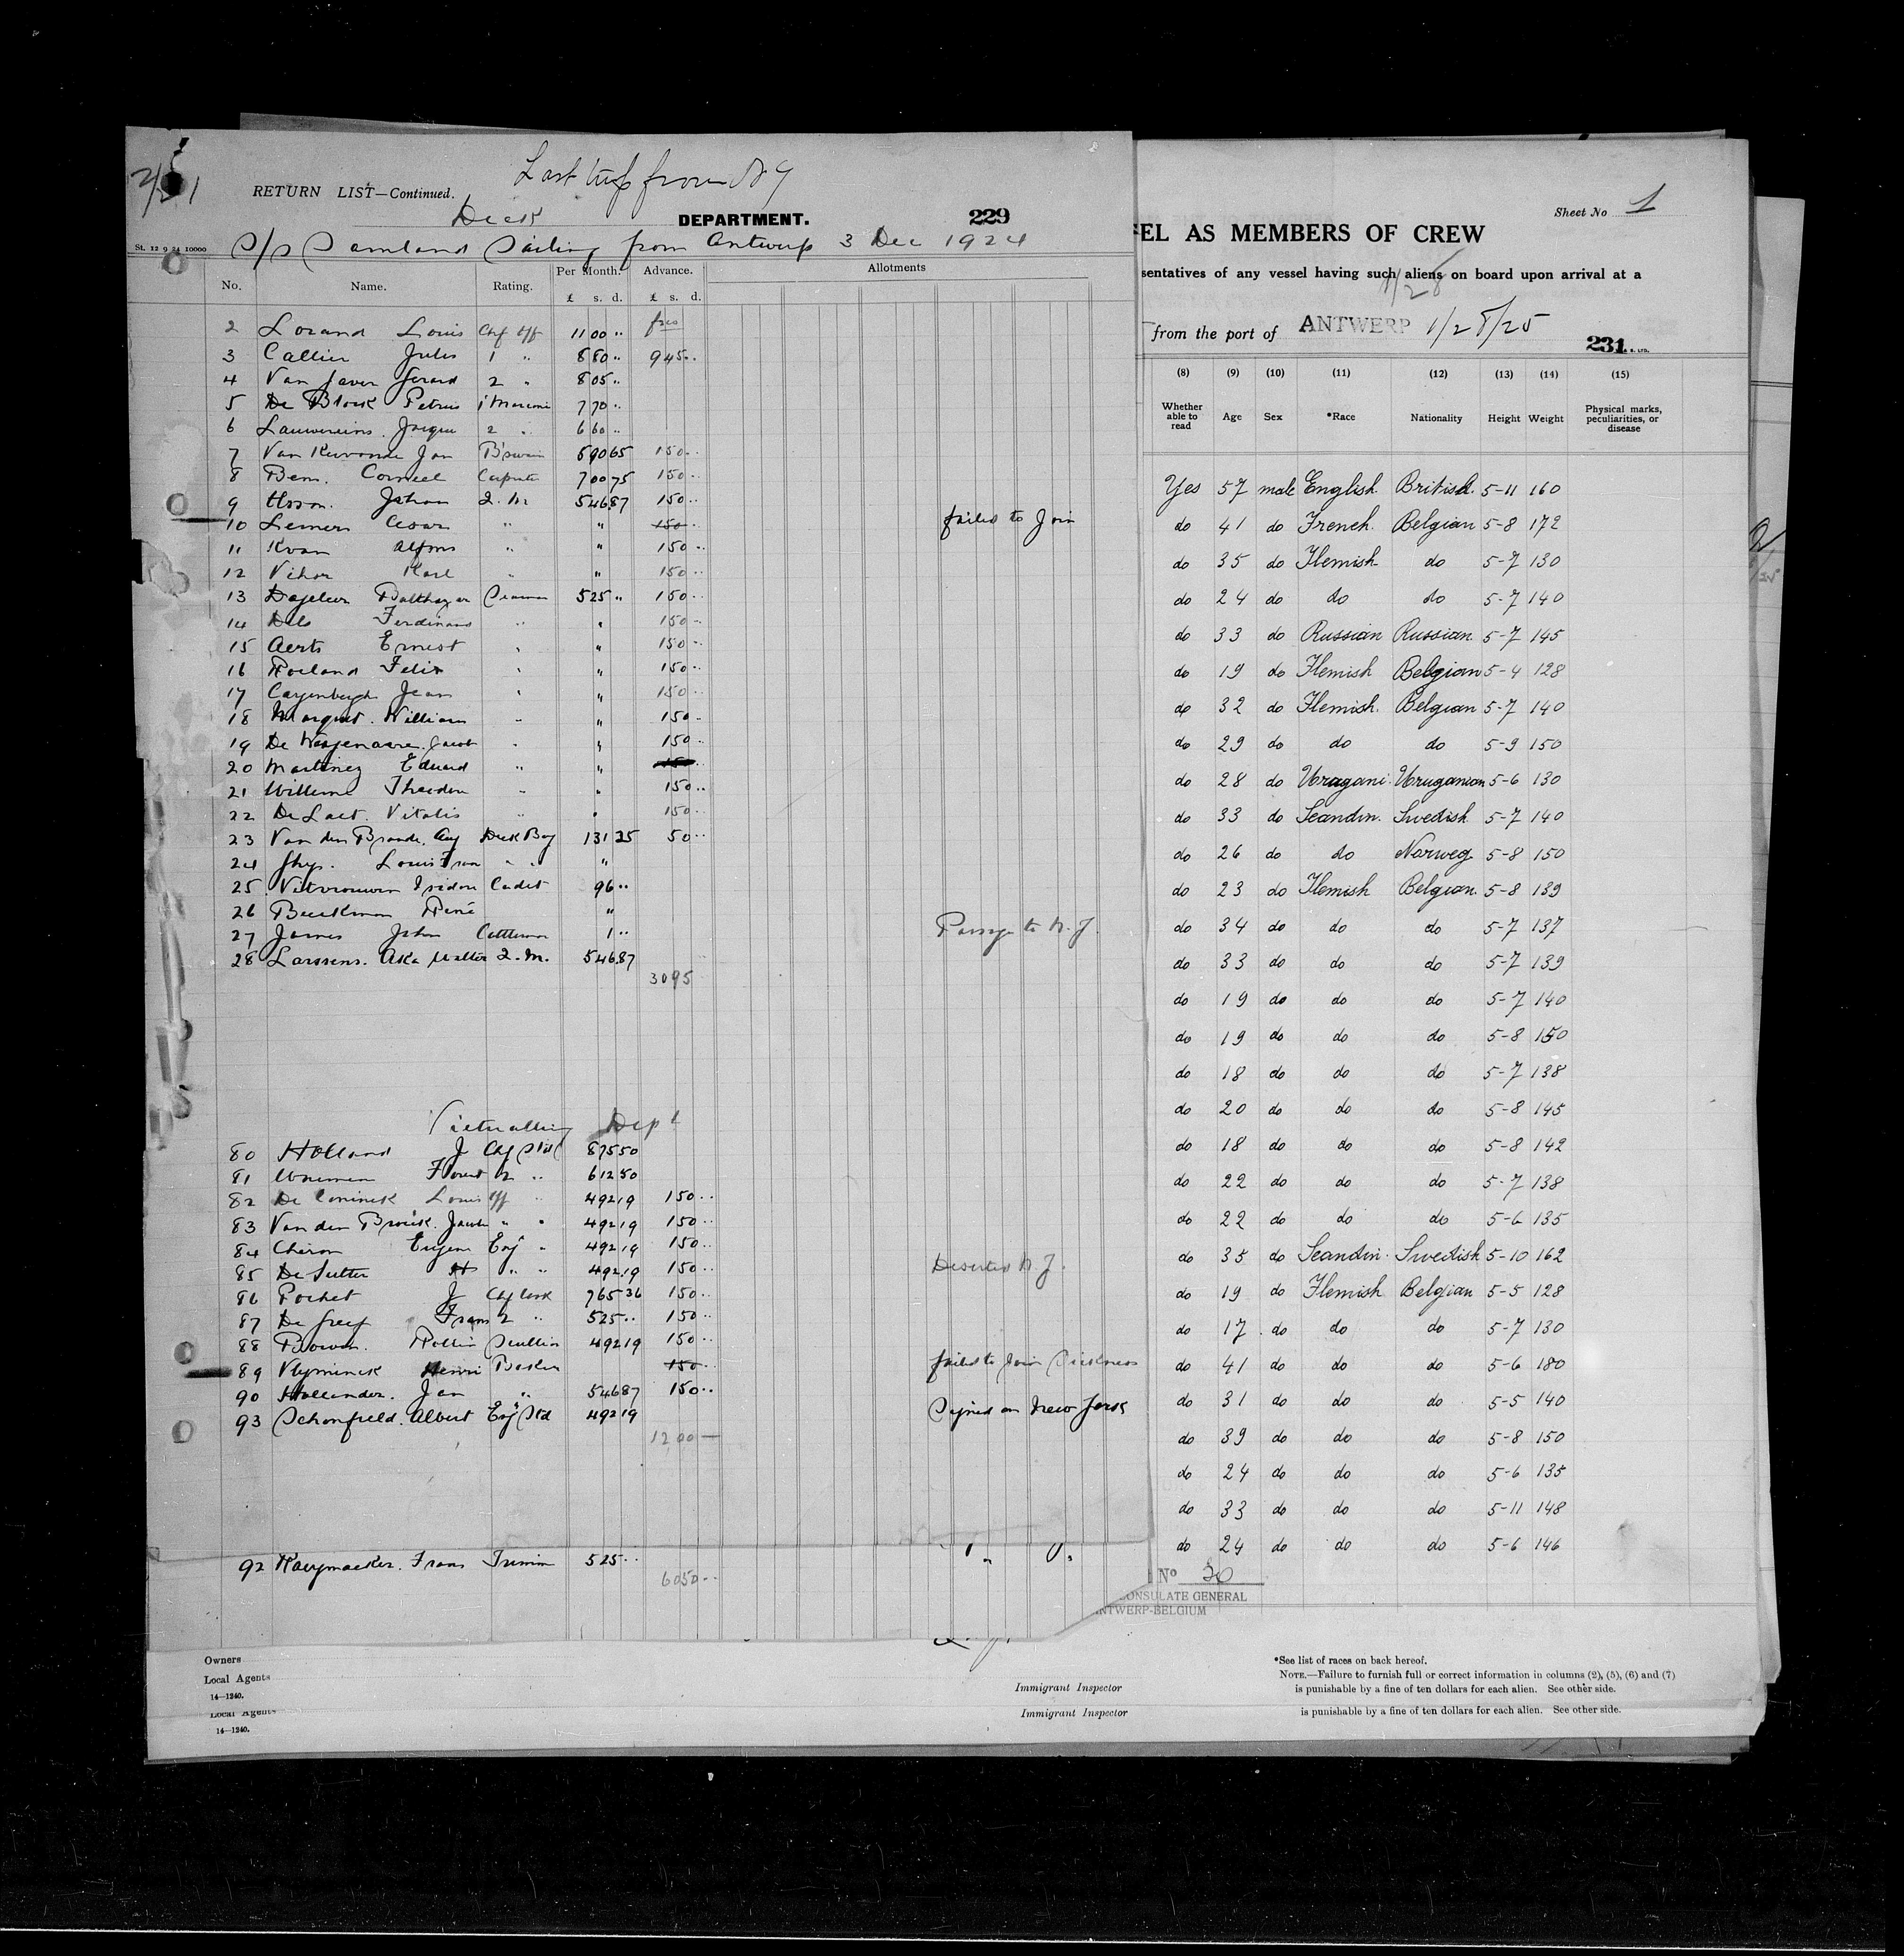 Last trip from N Y
RETURN LIST—Continued.
Deck DEPARTMENT. 229
St. 12 9 24 10000
S/S Samland Sailing from Antwerp 3 Dec 1924
No. Name. Rating. Per Month. Advance. Allotments
£ s. d. £ s. d.
2 Lorand Louis Chf Off 1100 ..
3 Callier Jules 1 " 880 .. 945 ..
4 Van Gerard 2 " 805 ..
5 De Block Petrus 1 Marconi 770 ..
6 Lauwereins 2 " 660 ..
7 Van Jan B'swain 690 65 150 ..
8 Bem. Corneel Carpenter 700 75 150 ..
9 Johan Q. M 546 87 150 ..
10 " " 150 failed to Join
11 Alfons " " 150 ..
12 Karl " " 150 ..
13 Balthazar Seaman 525 " 150 ..
14 Dels Ferdinand " " 150 ..
15 Aerts Ernest " " 150 ..
16 Roeland Felix " " 150 ..
17 Jean " " 150 ..
18 William " " 150 ..
19 De Jacob " " 150 ..
20 Martinez Eduard " " 150
21 Willems " " 150 ..
22 De Laet. Vitalis " " 150 ..
23 Van den Brande. Aug Deck Boy 131 25 50 ..
24 Louis Fran " " "
25 Isidore Cadet 96 ..
26 René "
27 James John Cattleman 1 .. Passage to N. Y.
28 Larssens. Q. M. 546 87
3095
Victualling Dept
80 Holland J Chf Std 875 50
81 2 " 612 50
82 De Coninck Louis 492 19 150 ..
83 Van den Jacob " " 492 19 150 ..
84 Eugene " 492 19 150 ..
85 De Sutter H " " 492 19 150 .. Deserted N. Y.
86 Pochet J Chf Cook 765 36 150 ..
87 De Greef Frans 2 " 525 .. 150 ..
88 Scullion 492 19 150 ..
89 Vlyminck Henri Baker 150 failed to Join Sickness
90 Hollander. Jan " 546 87 150 ..
93 Schonfield. Albert Std 492 19 Signed on New York
1200 —
92 Raeymaeker. Frans Trimmer 525 .. " "
6050 ..
Sheet No 1
EL AS MEMBERS OF CREW
sentatives of any vessel having such aliens on board upon arrival at a
1/28
from the port of ANTWERP 1/28/25
231
(8) (9) (10) (11) (12) (13) (14) (15)
Whether able to read Age Sex *Race Nationality Height Weight Physical marks, peculiarities, or disease
Yes 57 male English British 5-11 160
do 41 do French Belgian 5-8 172
do 35 do Flemish do 5-7 130
do 24 do do do 5-7 140
do 33 do Russian Russian 5-7 145
do 19 do Flemish Belgian 5-4 128
do 32 do Flemish Belgian 5-7 140
do 29 do do do 5-9 150
do 28 do Uragani. Uruganian 5-6 130
do 33 do Scandin. Swedish 5-7 140
do 26 do do Norweg 5-8 150
do 23 do Flemish Belgian 5-8 139
do 34 do do do 5-7 137
do 33 do do do 5-7 139
do 19 do do do 5-7 140
do 19 do do do 5-8 150
do 18 do do do 5-7 138
do 20 do do do 5-8 145
do 18 do do do 5-8 142
do 22 do do do 5-7 138
do 22 do do do 5-6 135
do 35 do Scandin. Swedish 5-10 162
do 19 do Flemish Belgian 5-5 128
do 17 do do do 5-7 130
do 41 do do do 5-6 180
do 31 do do do 5-5 140
do 39 do do do 5-8 150
do 24 do do do 5-6 135
do 33 do do do 5-11 148
do 24 do do do 5-6 146
No 30
CONSULATE GENERAL
ANTWERP-BELGIUM
Owners
Local Agents
14—1240.
Immigrant Inspector
*See list of races on back hereof.
NOTE.—Failure to furnish full or correct information in columns (2), (5), (6) and (7)
is punishable by a fine of ten dollars for each alien. See other side.
Local Agents
14—1240.
Immigrant Inspector
is punishable by a fine of ten dollars for each alien. See other side.